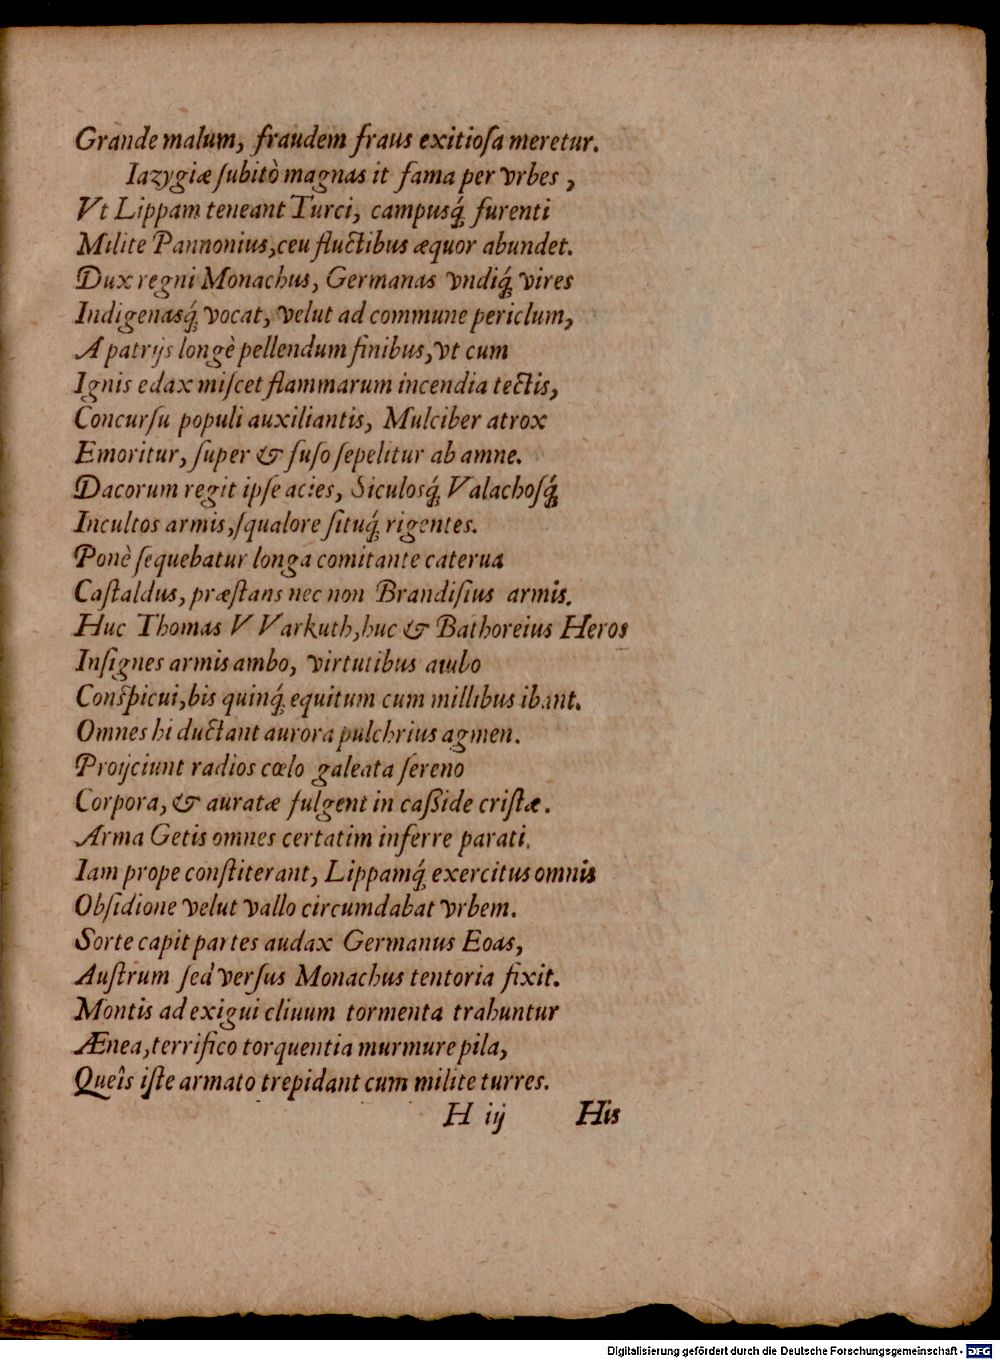 Grande malum, fraudem fraus exitioſa meretur.
Iazygiæ ſubitò magnas it fama per vrbes,
Vt Lippam teneant Turci, campusq́; furenti
Milite Pannonius, ceu fluctibus æquor abundet.
Dux regni Monachus, Germanas vndiq́; vires
Indigenasq́; vocat, velut ad commune periclum,
A patrijs longè pellendum finibus, vt cum
Ignis edax miſcet flammarum incendia tectis,
Concurſu populi auxiliantis, Mulciber atrox
Emoritur, ſuper & fuſo ſepelitur ab amne.
Dacorum regit ipſe acies, Siculosq́; Valachoſq́;
Incultos armis, ſqualore ſituq́; rigentes.
Ponè ſequebatur longa comitante caterua
Caſtaldus, præſtans nec non Brandiſius armis.
Huc Thomas VVarkuth, huc & Bathoreius Heros
Inſignes armis ambo, virtutibus ambo
Conſpicui, bis quinq́; equitum cum millibus ibant.
Omnes hi ductant aurora pulchrius agmen.
Proijciunt radios cœlo galeata ſereno
Corpora, & auratæ fulgent in caſſide criſtæ.
Arma Getis omnes certatim inferre parati.
Iam prope conſtiterant, Lippamq́; exercitus omnis
Obſidione velut vallo circumdabat vrbem.
Sorte capit partes audax Germanus Eoas,
Auſtrum ſed verſus Monachus tentoria fixit.
Montis ad exigui cliuum tormenta trahuntur
Ænea, terrifico torquentia murmure pila,
Queîs iſte armato trepidant cum milite turres.
H iij His
Digitalisierung gefördert durch die Deutsche Forschungsgemeinschaft - DFG